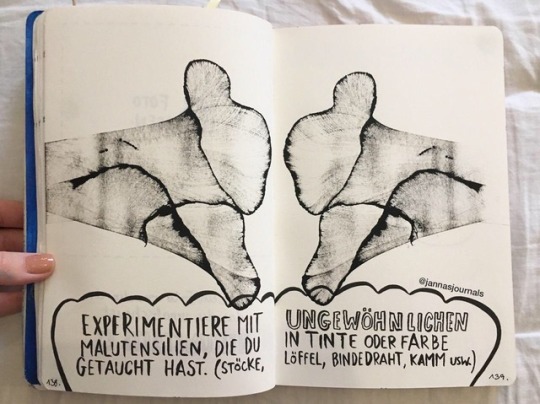 @jannasjournals
EXPERIMENTIERE MIT
MALUTENSILIEN, DIE DU
GETAUCHT HAST. (STÖCKE,
138.
UNGEWÖHNLICHEN
IN TINTE ODER FARBE
LÖFFEL, BINDEDRAHT, KAMM USW.)
139.